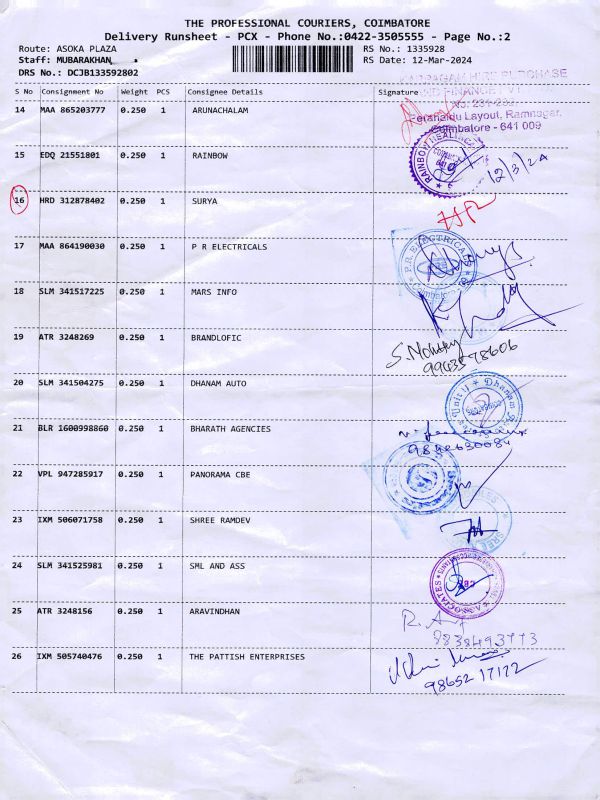 THE PROFESSIONAL COURIERS, COIMBATORE
Delivery Runsheet - PCX - Phone No.:0422-3505555 - Page No.:2
Route: ASOKA PLAZA
RS No.: 1335928
Staff: MUBARAKHAN,
RS Date: 12-Mar-2024
DRS No.: DCJB133592802
S No Consignment No Weight PCS Consignee Details Signature
HIRE PURCHASE
14 MAA 865203777 0.250 1 ARUNACHALAM
Layout, Ramnagar,
Coimbatore - 641 009
15 EDQ 21551801 0.250 1 RAINBOW
12/3/24
16 HRD 312878402 0.250 1 SURYA
17 MAA 864190030 0.250 1 P R ELECTRICALS
P.R. ELECTRICALS
Coimbatore
18 SLM 341517225 0.250 1 MARS INFO
19 ATR 3248269 0.250 1 BRANDLOFIC
20 SLM 341504275 0.250 1 DHANAM AUTO
Dhanam
21 BLR 1600998860 0.250 1 BHARATH AGENCIES
22 VPL 947285917 0.250 1 PANORAMA CBE
23 IXM 506071758 0.250 1 SHREE RAMDEV
24 SLM 341525981 0.250 1 SML AND ASS
ASSOCIATES
25 ATR 3248156 0.250 1 ARAVINDHAN
9838493773
26 IXM 505740476 0.250 1 THE PATTISH ENTERPRISES
98652 17172